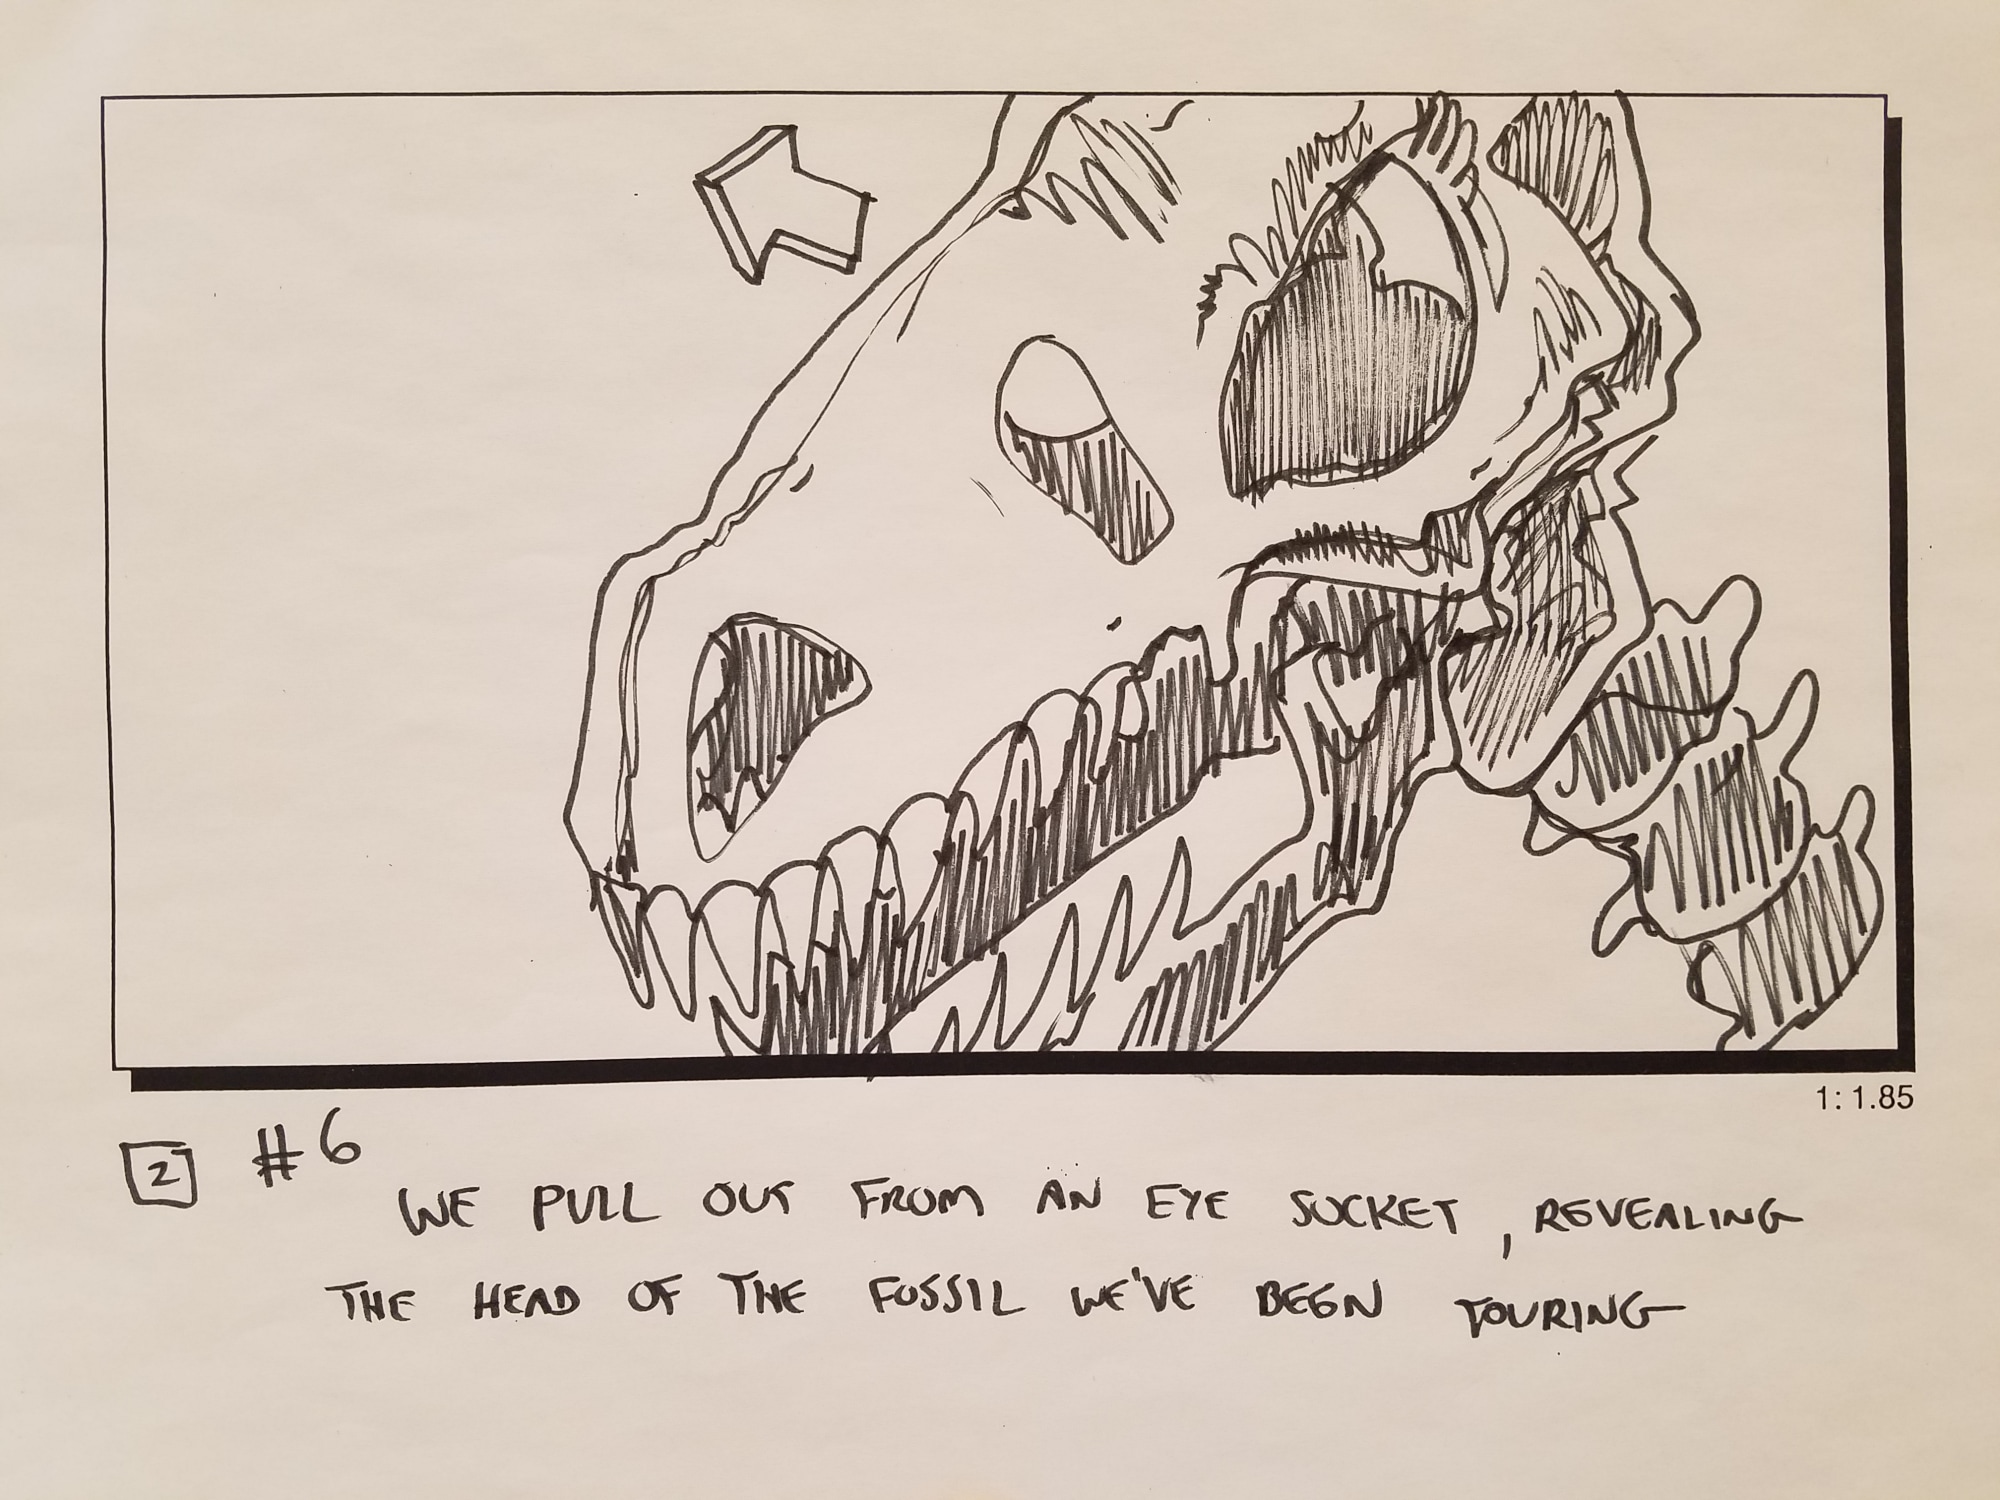 1: 1.85
2 #6
WE PULL OUT FROM AN EYE SOCKET, REVEALING
THE HEAD OF THE FOSSIL WE'VE BEEN TOURING